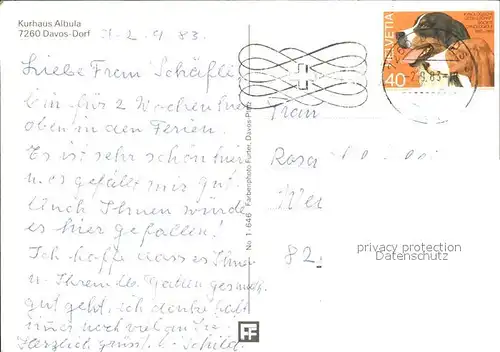 Kurhaus Albula
7260 Davos-Dorf
2. 9. 83.
Liebe Frau Schäfli
bin für 2 Wochen hier
oben in den Ferien.
Es ist sehr schön hier
u. es gefällt mir gut
Auch Ihnen würde
es hier gefallen!
Ich hoffe dass es Ihnen
u. Ihrem
gut geht, ich denke halt
immer noch viel an Sie
Herzlich grüsst
No. 1-646 Farbenphoto Furter, Davos-Platz
HELVETIA
40
-2.9.83-
Frau
Rosa
82
privacy protection
Datenschutz